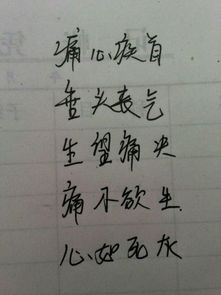 痛心疾首
垂头丧气
生望痛决
痛不欲生
心如死灰